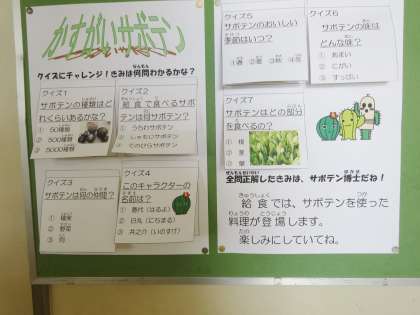 かすがいサボテン
クイズにチャレンジ！きみは何問わかるかな？
クイズ1
サボテンの種類はど
れくらいあるかな？
① 50種類
② 500種類
③ 5000種類
クイズ2
給食で食べるサボ
テンは何サボテン？
① うちわサボテン
② しゃもじサボテン
③ てのひらサボテン
クイズ3
サボテンは何の仲間？
① 種実
② 野菜
③ 肉
クイズ4
このキャラクターの
名前は？
① 春代（はるよ）
② 日丸（にちまる）
③ 井之介（いのすけ）
クイズ5
サボテンのおいしい
季節はいつ？
①春 ②夏 ③秋 ④冬
クイズ6
サボテンの味は
どんな味？
① あまい
② にがい
③ すっぱい
クイズ7
サボテンはどの部分
を食べるの？
① 根
② 茎
③ 葉
全問正解したきみは、サボテン博士だね！
給食では、サボテンを使った
料理が登場します。
楽しみにしていてね。